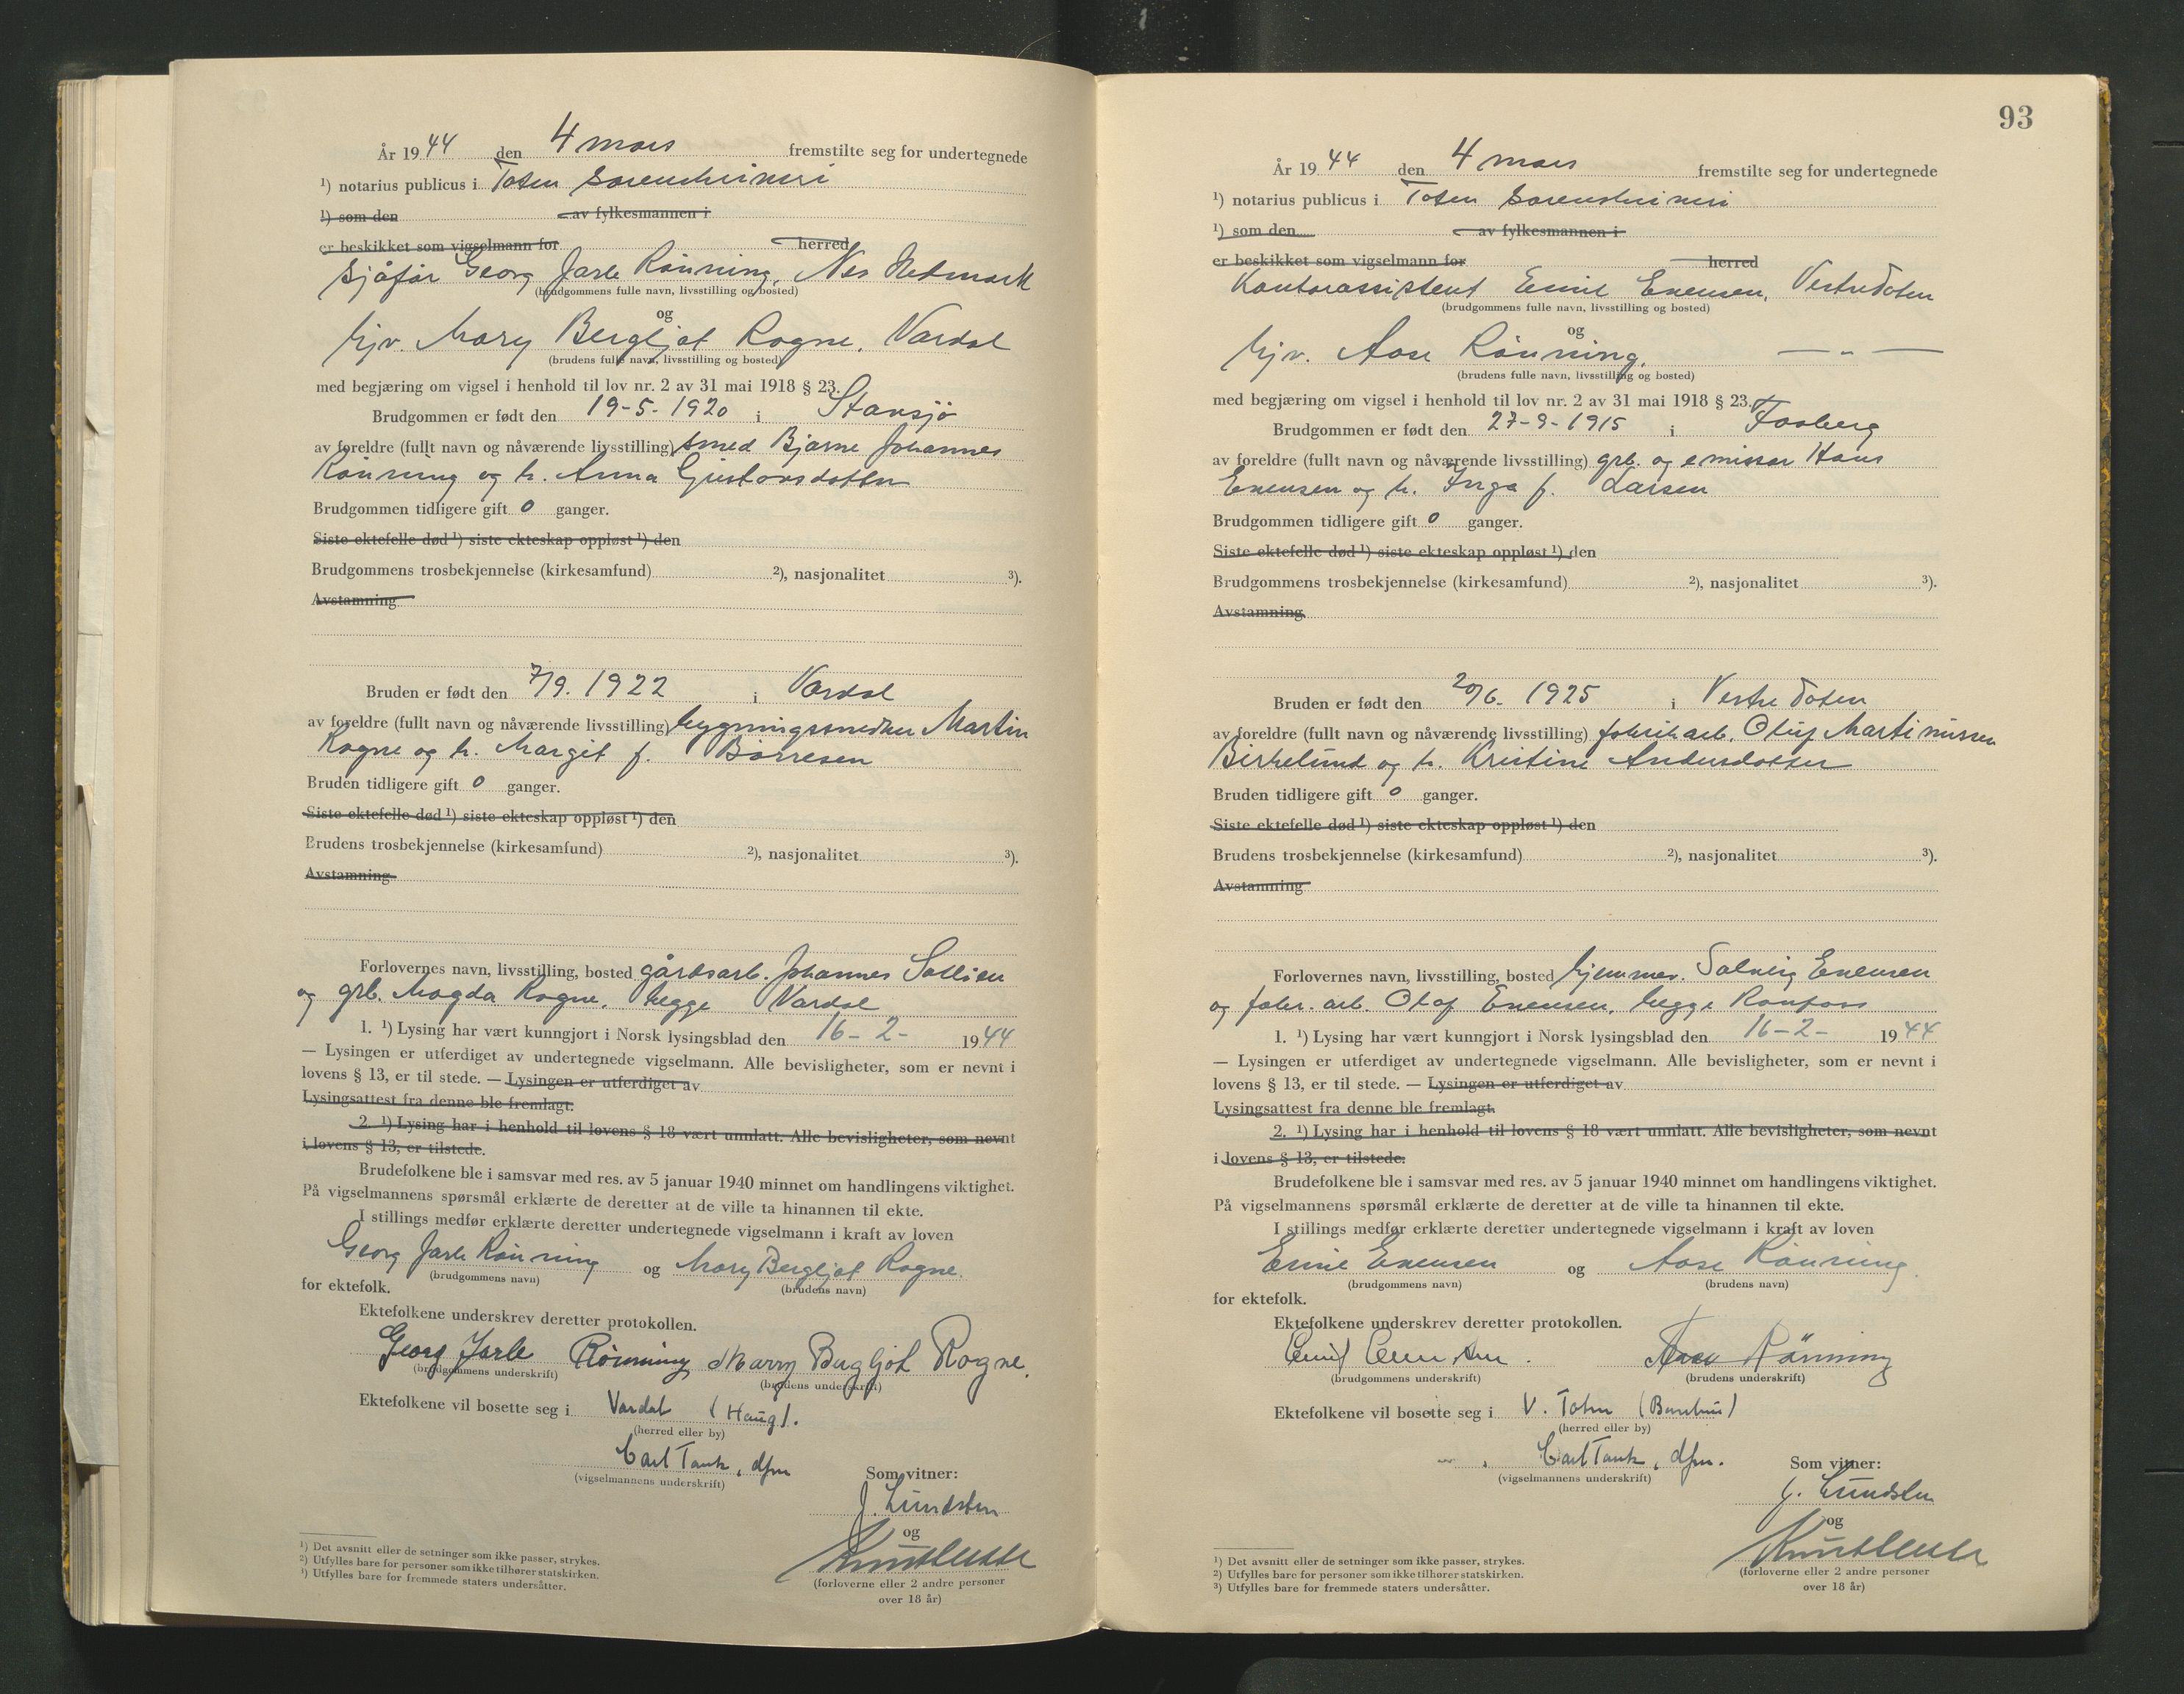 År 1944 den 4 mars fremstilte seg for undertegnede
¹) notarius publicus i Toten sorenskriveri
¹) som den av fylkesmannen i
er beskikket som vigselmann for herred
Sjåfør Georg Jarle Rönning, Nes Hedmark
(brudgommens fulle navn, livsstilling og bosted)
og
hjv. Mary Bergljot Rogne, Vardal
(brudens fulle navn, livsstilling og bosted)
med begjæring om vigsel i henhold til lov nr. 2 av 31 mai 1918 § 23.
Brudgommen er født den 19-5-1920 i Stavsjø
av foreldre (fullt navn og nåværende livsstilling) smed Bjarne Johannes
Rönning og h. Anna Gustavsdatter
Brudgommen tidligere gift 0 ganger.
Siste ektefelle død ¹) siste ekteskap oppløst ¹) den
Brudgommens trosbekjennelse (kirkesamfund) ²), nasjonalitet ³).
Avstamning
Bruden er født den 7/9. 1922 i Vardal
av foreldre (fullt navn og nåværende livsstilling) bygningssnedker Martin
Rogne og h. Margit f. Børresen
Bruden tidligere gift 0 ganger.
Siste ektefelle død ¹) siste ekteskap oppløst ¹) den
Brudens trosbekjennelse (kirkesamfund) ²), nasjonalitet ³).
Avstamning
Forlovernes navn, livsstilling, bosted gårdsarb. Johannes Sollien
og grb. Magda Rogne, begge Vardal
1. ¹) Lysing har vært kunngjort i Norsk lysingsblad den 16-2- 1944
— Lysingen er utferdiget av undertegnede vigselmann. Alle bevisligheter, som er nevnt i
lovens § 13, er til stede. — Lysingen er utferdiget av
Lysingsattest fra denne ble fremlagt.
2. ¹) Lysing har i henhold til lovens § 18 vært unnlatt. Alle bevisligheter, som nevnt
i lovens § 13, er tilstede.
Brudefolkene ble i samsvar med res. av 5 januar 1940 minnet om handlingens viktighet.
På vigselmannens spørsmål erklærte de deretter at de ville ta hinannen til ekte.
I stillings medfør erklærte deretter undertegnede vigselmann i kraft av loven
Georg Jarle Rönning og Mary Bergljot Rogne.
(brudgommens navn) (brudens navn)
for ektefolk.
Ektefolkene underskrev deretter protokollen.
Georg Jarle Rönning Marry Bergljot Rogne.
(brudgommens underskrift) (brudens underskrift)
Ektefolkene vil bosette seg i Vardal (Haug).
(herred eller by)
Carl Tank, dfm
(vigselmannens underskrift)
Som vitner:
J. Lundsten
og
(forloverne eller 2 andre personer
over 18 år)
¹) Det avsnitt eller de setninger som ikke passer, strykes.
²) Utfylles bare for personer som ikke tilhører statskirken.
³) Utfylles bare for fremmede staters undersåtter.
93
År 1944 den 4 mars fremstilte seg for undertegnede
¹) notarius publicus i Toten sorenskriveri
¹) som den av fylkesmannen i
er beskikket som vigselmann for herred
Kontorassistent Emil Evensen, Vestre Toten
(brudgommens fulle navn, livsstilling og bosted)
og
hjv. Aase Rönning, — " —
(brudens fulle navn, livsstilling og bosted)
med begjæring om vigsel i henhold til lov nr. 2 av 31 mai 1918 § 23.
Brudgommen er født den 27-9-1915 i Faaberg
av foreldre (fullt navn og nåværende livsstilling) grb. og emissær Hans
Evensen og h. Inga f. Larsen
Brudgommen tidligere gift 0 ganger.
Siste ektefelle død ¹) siste ekteskap oppløst ¹) den
Brudgommens trosbekjennelse (kirkesamfund) ²), nasjonalitet ³).
Avstamning
Bruden er født den 20/6. 1925 i Vestre Toten
av foreldre (fullt navn og nåværende livsstilling) fabrikarb. Oluf Martinussen
Birkelund og h. Kristine Andersdatter
Bruden tidligere gift 0 ganger.
Siste ektefelle død ¹) siste ekteskap oppløst ¹) den
Brudens trosbekjennelse (kirkesamfund) ²), nasjonalitet ³).
Avstamning
Forlovernes navn, livsstilling, bosted hjemmev. Solveig Evensen
og fabr. arb. Olaf Evensen, begge Raufoss
1. ¹) Lysing har vært kunngjort i Norsk lysingsblad den 16-2- 1944
— Lysingen er utferdiget av undertegnede vigselmann. Alle bevisligheter, som er nevnt i
lovens § 13, er til stede. — Lysingen er utferdiget av
Lysingsattest fra denne ble fremlagt.
2. ¹) Lysing har i henhold til lovens § 18 vært unnlatt. Alle bevisligheter, som nevnt
i lovens § 13, er tilstede.
Brudefolkene ble i samsvar med res. av 5 januar 1940 minnet om handlingens viktighet.
På vigselmannens spørsmål erklærte de deretter at de ville ta hinannen til ekte.
I stillings medfør erklærte deretter undertegnede vigselmann i kraft av loven
Emil Evensen og Aase Rönning.
(brudgommens navn) (brudens navn)
for ektefolk.
Ektefolkene underskrev deretter protokollen.
Emil Evensen. Aase Rönning
(brudgommens underskrift) (brudens underskrift)
Ektefolkene vil bosette seg i V. Toten
(herred eller by)
Carl Tank, dfm.
(vigselmannens underskrift)
Som vitner:
J. Lundsten
og
(forloverne eller 2 andre personer
over 18 år)
¹) Det avsnitt eller de setninger som ikke passer, strykes.
²) Utfylles bare for personer som ikke tilhører statskirken.
³) Utfylles bare for fremmede staters undersåtter.